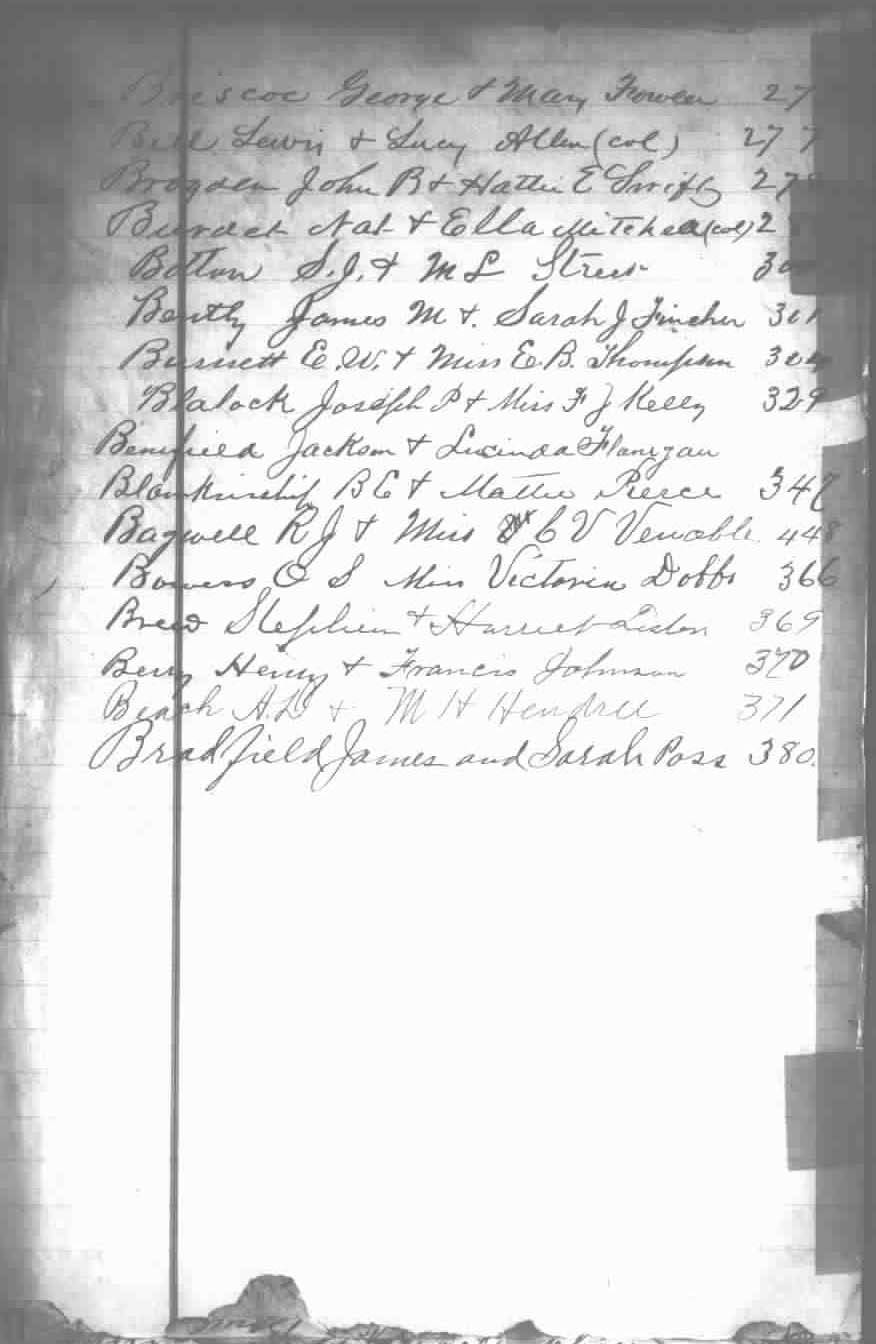 Briscoe George & Mary Fowler 27
Bell Lewis & Lucy Allen (col) 277
Brogden John B & Hattie E Swift 27
Burdet Nat & Ella Mitchell (col) 2
Bolton S.J. & M L Street 30
Bently James M & Sarah J Fincher 301
Burnett E.W. & Miss E.B. Thompson 304
Blalock Joseph P & Miss F J Kelly 329
Benefield Jackson & Lucinda Flanigan
Blankinship B E & Mattie Pierce 347
Bagwell R J & Miss C V Venable 448
Bowers O S Miss Victoria Dobbs 366
Breed Stephen & Harriet Liston 369
Berry Henry & Francis Johnson 370
Beach A.L & M H Hendree 371
Bradfield James and Sarah Poss 380.